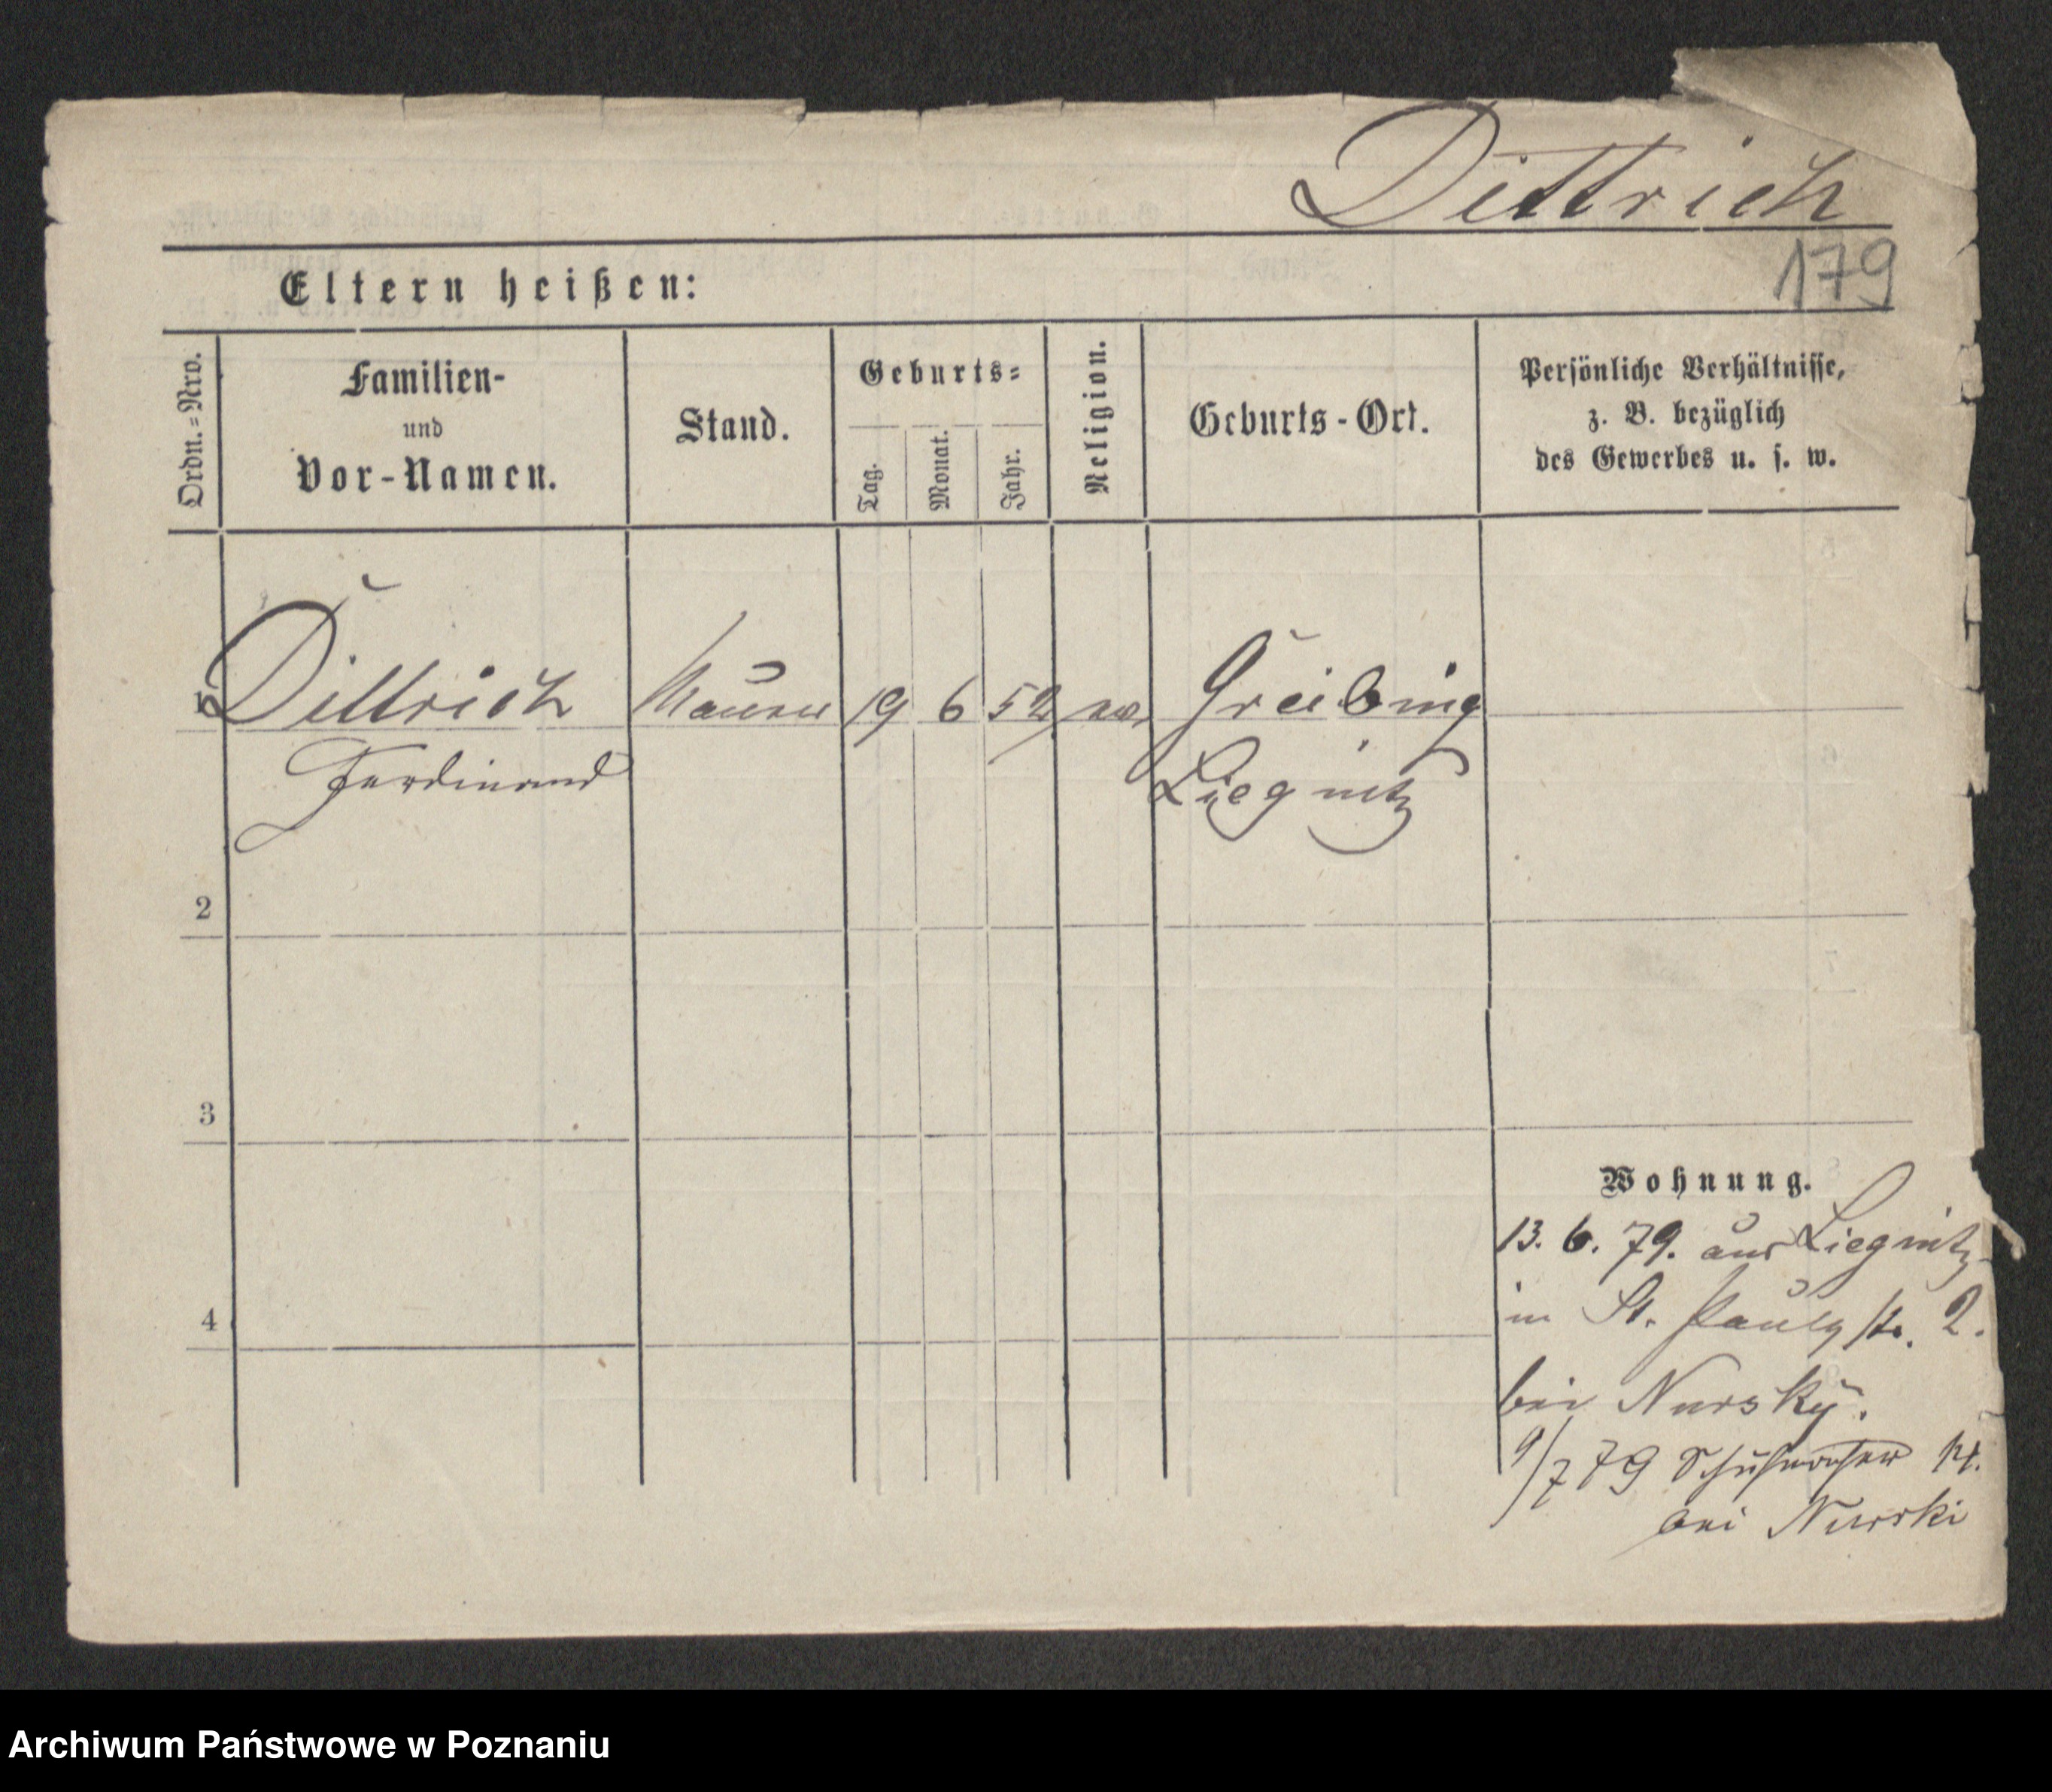 Dittrich
179
Eltern heißen:
Ordn.=Nro.
Familien-
und
Vor-Namen.
Stand.
Geburts=
Tag.
Monat.
Jahr.
Religion.
Geburts-Ort.
Persönliche Verhältnisse,
z. B. bezüglich
des Gewerbes u. s. w.
Dittrich Maurer 19 6 52 ev. Greibnig
Ferdinand Liegnitz
2
3
4
Wohnung.
13. 6. 79. aus Liegnitz
in St. Paulystr. 2.
bei Nursky.
9/7 79 14.
bei Nurski
Archiwum Państwowe w Poznaniu